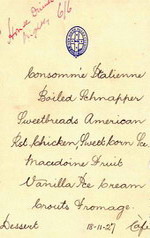 6/6
Consommé Italienne
Boiled Schnapper
Sweetbreads American
Rst Chicken, Sweet Corn Sce
Macedoine Fruit
Vanilla Ice Cream
Crouts Fromage
Dessert 18-11-27 Café